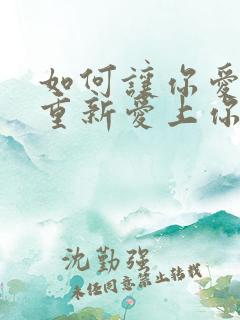 如何讓你愛
重新愛上你
沈勤强
未經同意禁止轉載